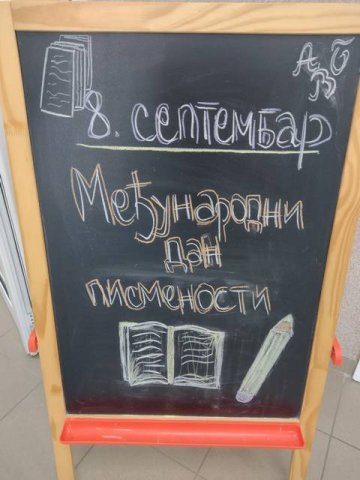 А
В
Б
8. септембар
Међународни
дан
писмености